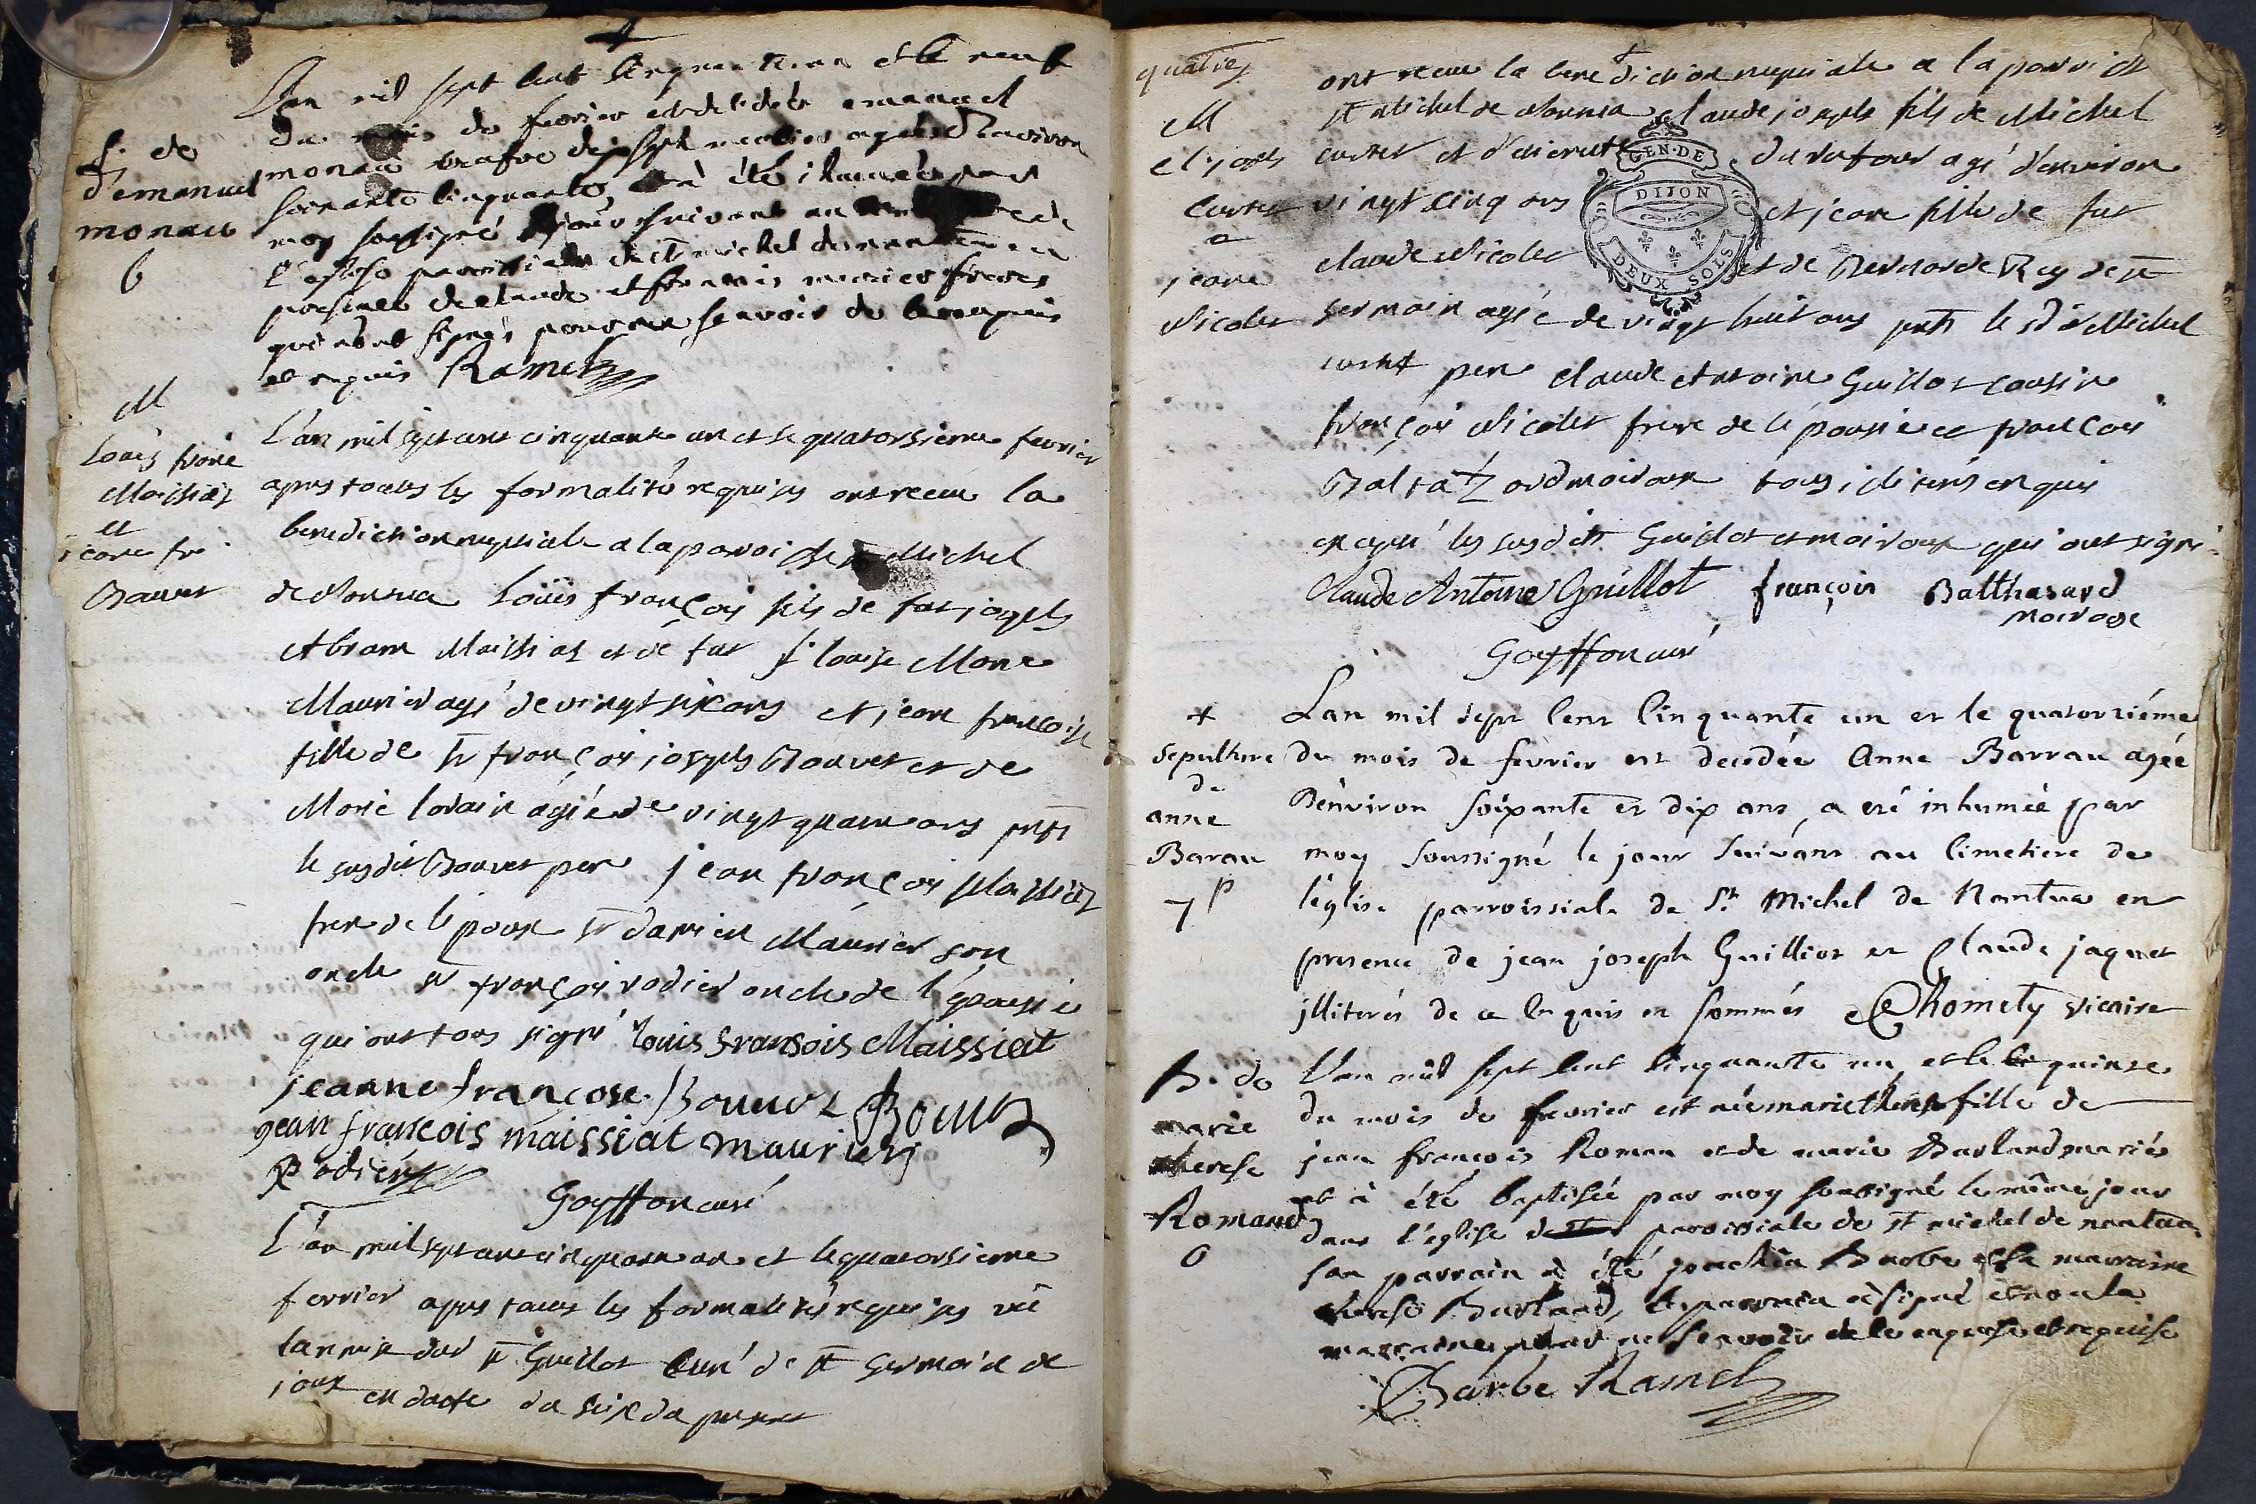 L'an mil sept cent cinquante un et le neuf
du mois de fevrier est decede emanuel
monaco agé d'environ
soixante cinquante, et à été inhumé par
moy soussigné le jour suivant au
l'eglise parroissiale de st michel de nantua en
presence de claude et francois freres
qui n'ont signés pour ne scavoir de ce enquis
et requis Ramel
f. de
d'emanuel
monaco
6
M
Louis frone
Maissiaz
et
jeane fr.
Bauvet
L'an mil sept cent cinquante un et le quatorsieme fevrier
apres toutes les formalités requises ont receu la
benediction nuptiale a la paroisse st Michel
de Nantua Loüis françois fils de fut joseph
Abram Maissiaz et de fut f. louise Marie
Maurier agé de vingt six ans et jeane francoise
fille de Sr françois joseph Bouvet et de
Marie lorain agée de vingt quatre ans pnts
le susdit Bouvet pere jean françois Maissiaz
frere de l'époux sr damien Maurier son
oncle sr françois rodier oncle de l'épousée
qui ont tous signé Louis fransois Maissiat
jeanne françoise Bouvet Bouvet
jean françois maissiat maurier
Rodier
Goyffon curé
L'an mil sept cent cinquante un et le quatorsieme
fevrier apres toutes les formalités requises vü
la remise du Sr Guillot curé de st Germain de
joux en datte du seize du present
quatre
M
cl. joseph
curtet
a
jeane
Nicolet
ont receu la benediction nuptiale a la paroisse
st Michel de Nantua claude joseph fils de Michel
curtet et d'
agé d'environ
vingt cinq ans et jeane fille de fut
claude Nicolet et de Bernarde Rey de st
germain agée de vingt huit ans pnts le sr Michel
curtet pere claude Antoine Guillot cousin
françois Nicolet frere de l'épousée et françois
Baltazard moiroux tous iliterés enquis
excepté les susdits Guillot et moiroux qui ont signé
Claude Antoine Guillot françois Balthasard
moiroux
Goyffon curé
+
sepulture
de
anne
Barau
7 p
Lan mil sept cent cinquante un et le quatorziéme
du mois de fevrier est decedée Anne Barrau agée
d'environ soixante et dix ans, a eté inhumée par
moy soussigné le jour suivant au cimetiere de
l'église parroissiale de St Michel de Nantua en
presence de jean joseph Guilliot et Claude jaquet
illiterés de ce enquis et sommés Chomety vicaire
B. de
marie
therese
Romand
6
L'an mil sept cent cinquante un, et le quinze
du mois de fevrier est née marie therese fille de
jean francois Roman et de marie Barland mariés
et à été baptisée par moy soussigné le même jour
dans l'église paroissiale de st michel de nantua
son parrain à été joachin Barbe et sa marraine
therese Barland, le parrain a signé et non la
marraine pour ne scavoir de ce enquise et requise
Barbe Ramel
GEN. DE
DIJON
DEUX SOLS